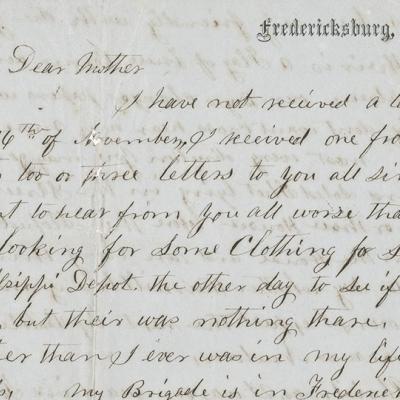 Fredericksburg,
Dear Mother
I have not received a
6th of November, I received one
too or three letters to you all
to hear from you all worse
looking for some Clothing
Depot the other day to see if
but their was nothing thare.
than I ever was in my
my Brigade is in